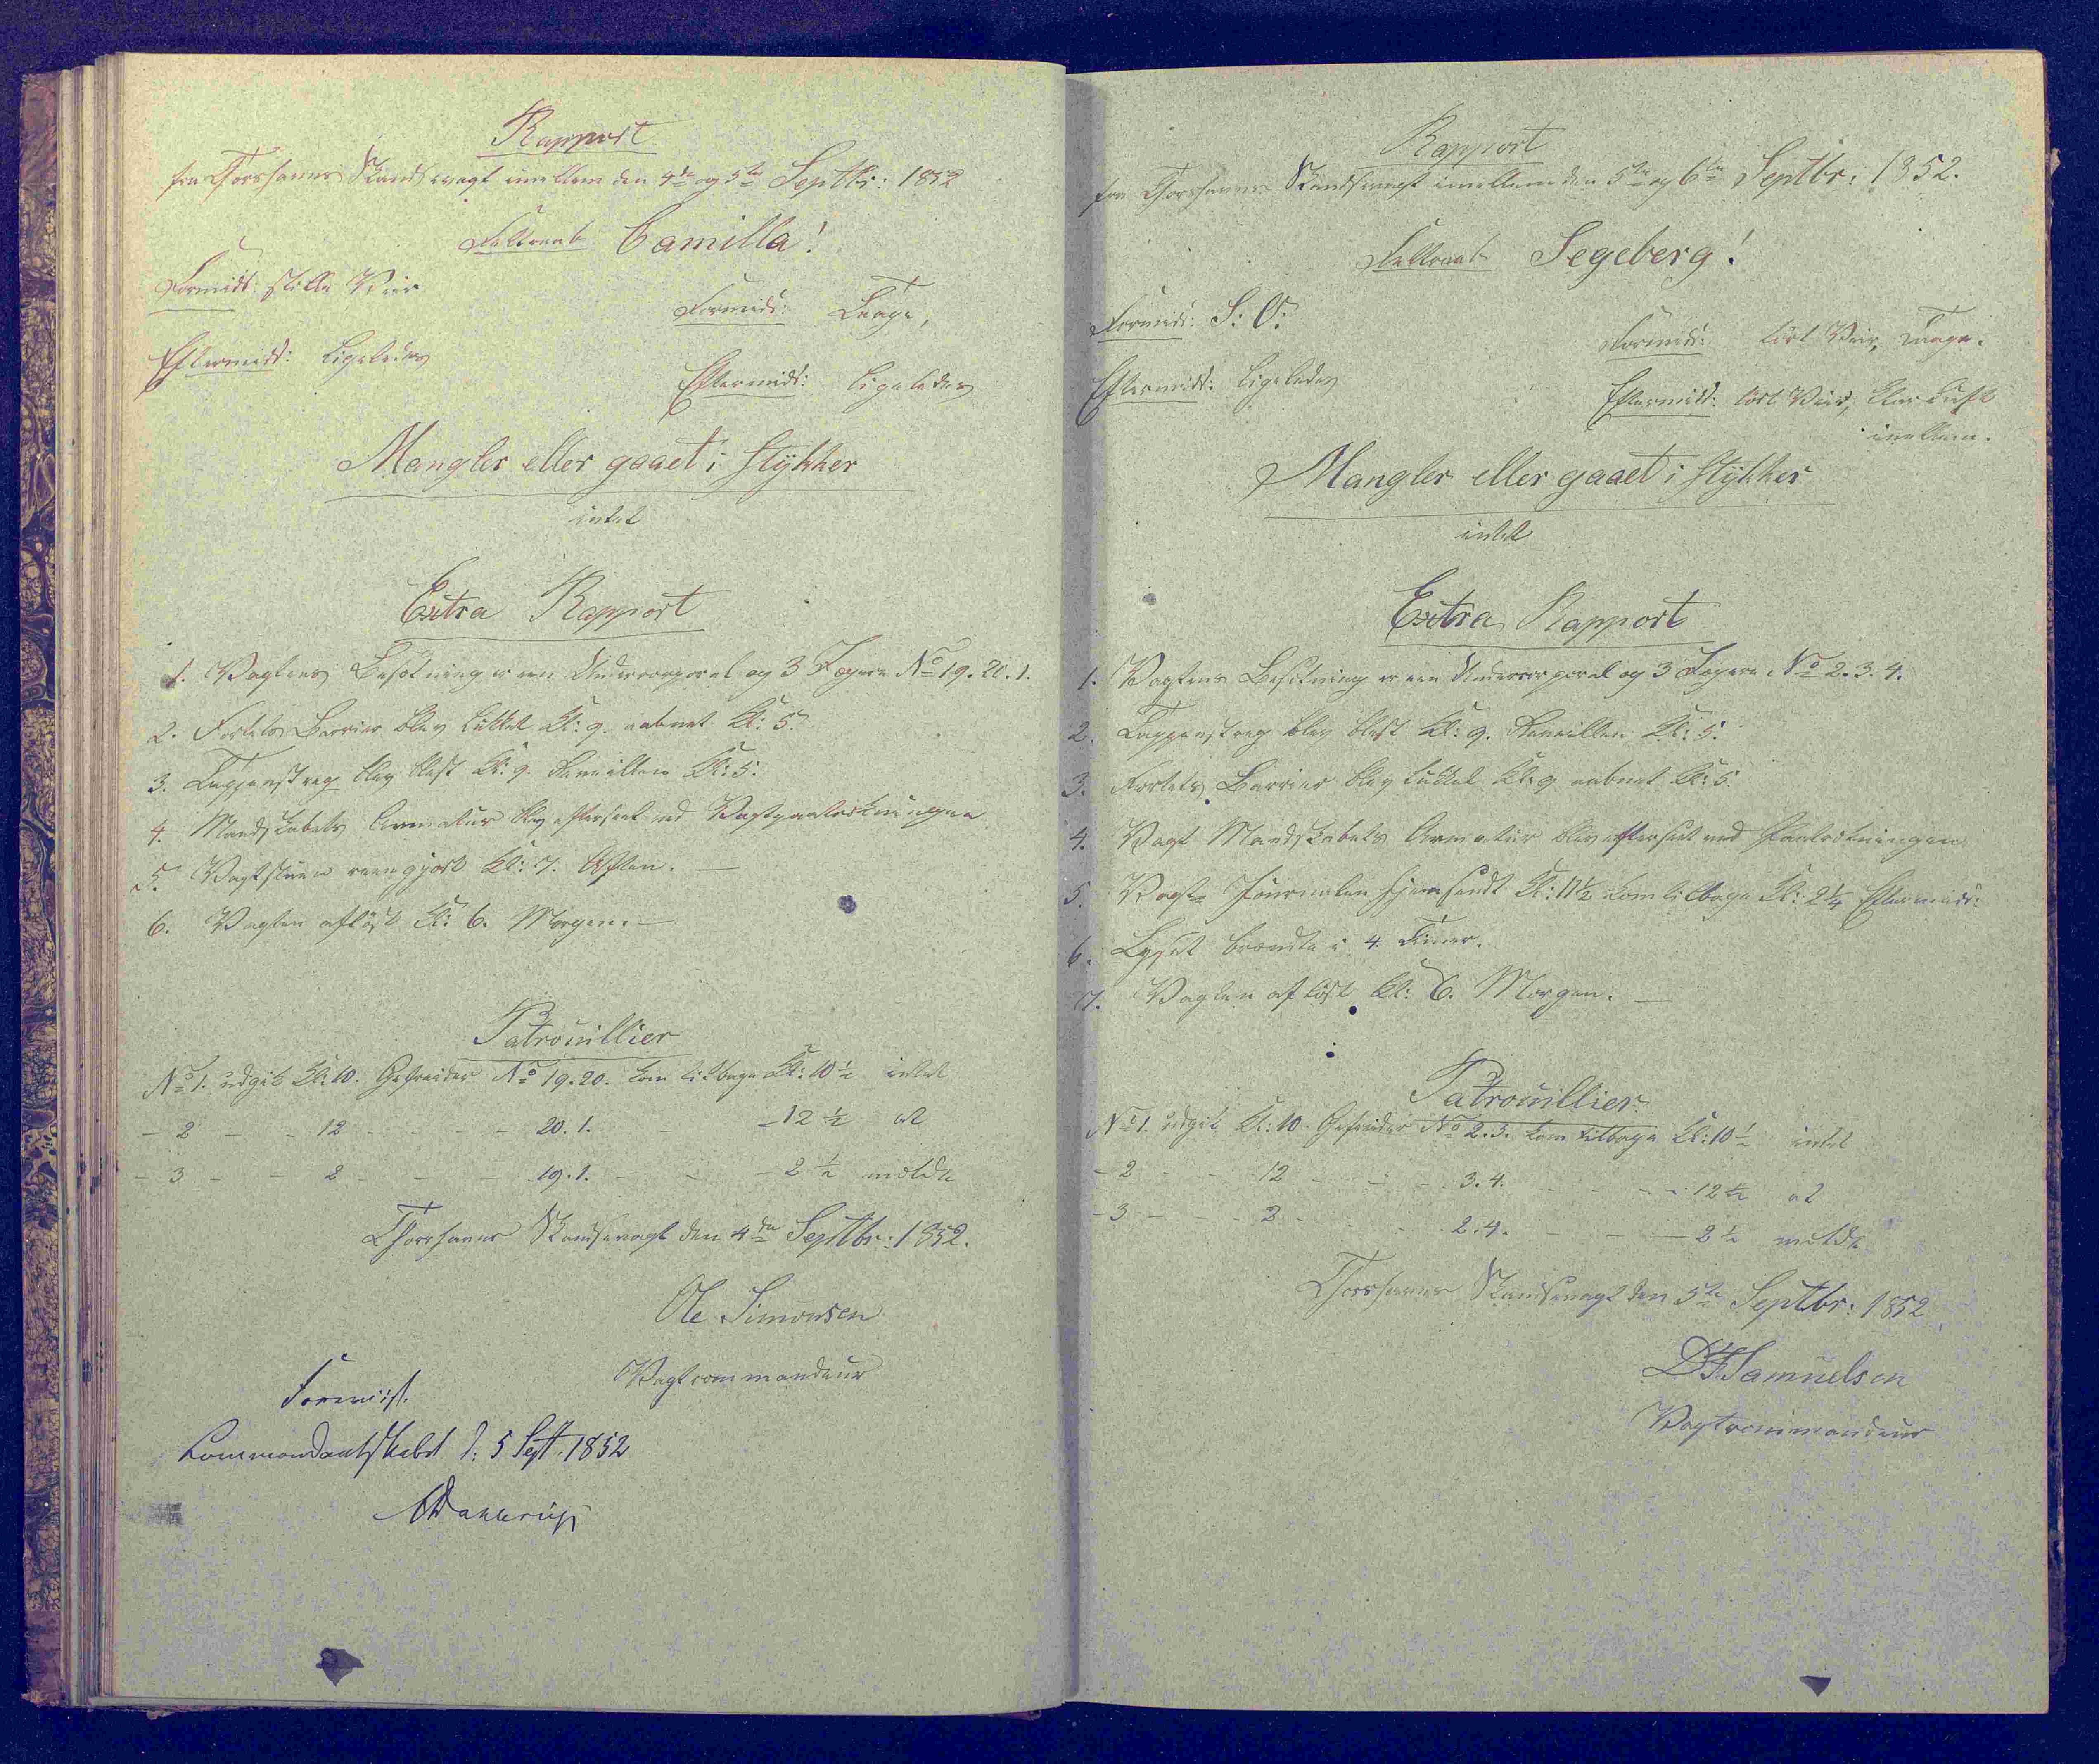 Rapport
fra Thorshavns Skandsevagt imellem den 4de og 5te Septbr: 1852
Feltraab Camilla!
Formidt: stille Veir
Formidt: Taage,
Eftermidt: ligeledes
Eftermidt: ligeledes
Mangler eller gaaet i stÿkker
intet
Extra Rapport
1. Vagtens Besætning er een Undercorporal og 3 Jægere No 19. 20. 1.
2. Fortets Barrier blev lukket Kl: 9. aabnet Kl: 5.
3. Tappenstreg blev blæst Kl: 9. Reveillen Kl: 5.
4. Mandskabets Armatur blev efterseet ved Vagtparaden
5. Vagtstuen reengjort Kl: 7. Aften. —
6. Vagten afløst Kl: 6. Morgen. —
Patrouillier
No 1. udgik Kl: 10. Gefreider No 19. 20. kom tilbage Kl: 10 ½ intet
- 2 - - 12 - - - - 20. 1. - - 12 ½ at
- 3 - - 2 - - - 19. 1. - - - 2 ½ melde
Thorshavns Skandsevagt den 4de Septbr: 1852.
Ole Simonsen
Vagtcommandeur
Foreviist.
Commandantskabet d: 5 Sept. 1852
Dahlerup
Rapport
fra Thorshavns Skandsevagt imellem den 5te og 6te Septbr: 1852.
Feltraab Segeberg!
Formidt: S: O:
Formidt: tört Veir, Taage.
Eftermidt: ligeledes
Eftermidt: tört Veir, klar Luft
imellem.
Mangler eller gaaet i stÿkker
intet
Extra Rapport
1. Vagtens Besætning er een Undercorporal og 3 Jægere No 2. 3. 4.
2. Tappenstreg blev blæst Kl: 9. Reveillen Kl: 5.
3. Fortets Barrier blev lukket Kl: 9 aabnet Kl: 5.
4. Vagt Mandskabets Armatur blev efterseet ved
5. Vagt Journalen hjemsendt Kl: 11½ kom tilbage Kl: 2¼ Eftermidt:
6. Lyset brændte i 4. Timer.
7. Vagten aflöst Kl: 6. Morgen. —
Patrouillier
No 1. udgik Kl: 10 Gefreider No 2. 3. kom tilbage Kl: 10 ½ intet
- 2 - - 12 - - - 3. 4. - - - 12 ½ at
- 3 - - - 2 - - - 2. 4. - - - 2 ½ melde
Thorshavns Skandsevagt den 5te Septbr: 1852
Samuelsen
Vagtcommandeur